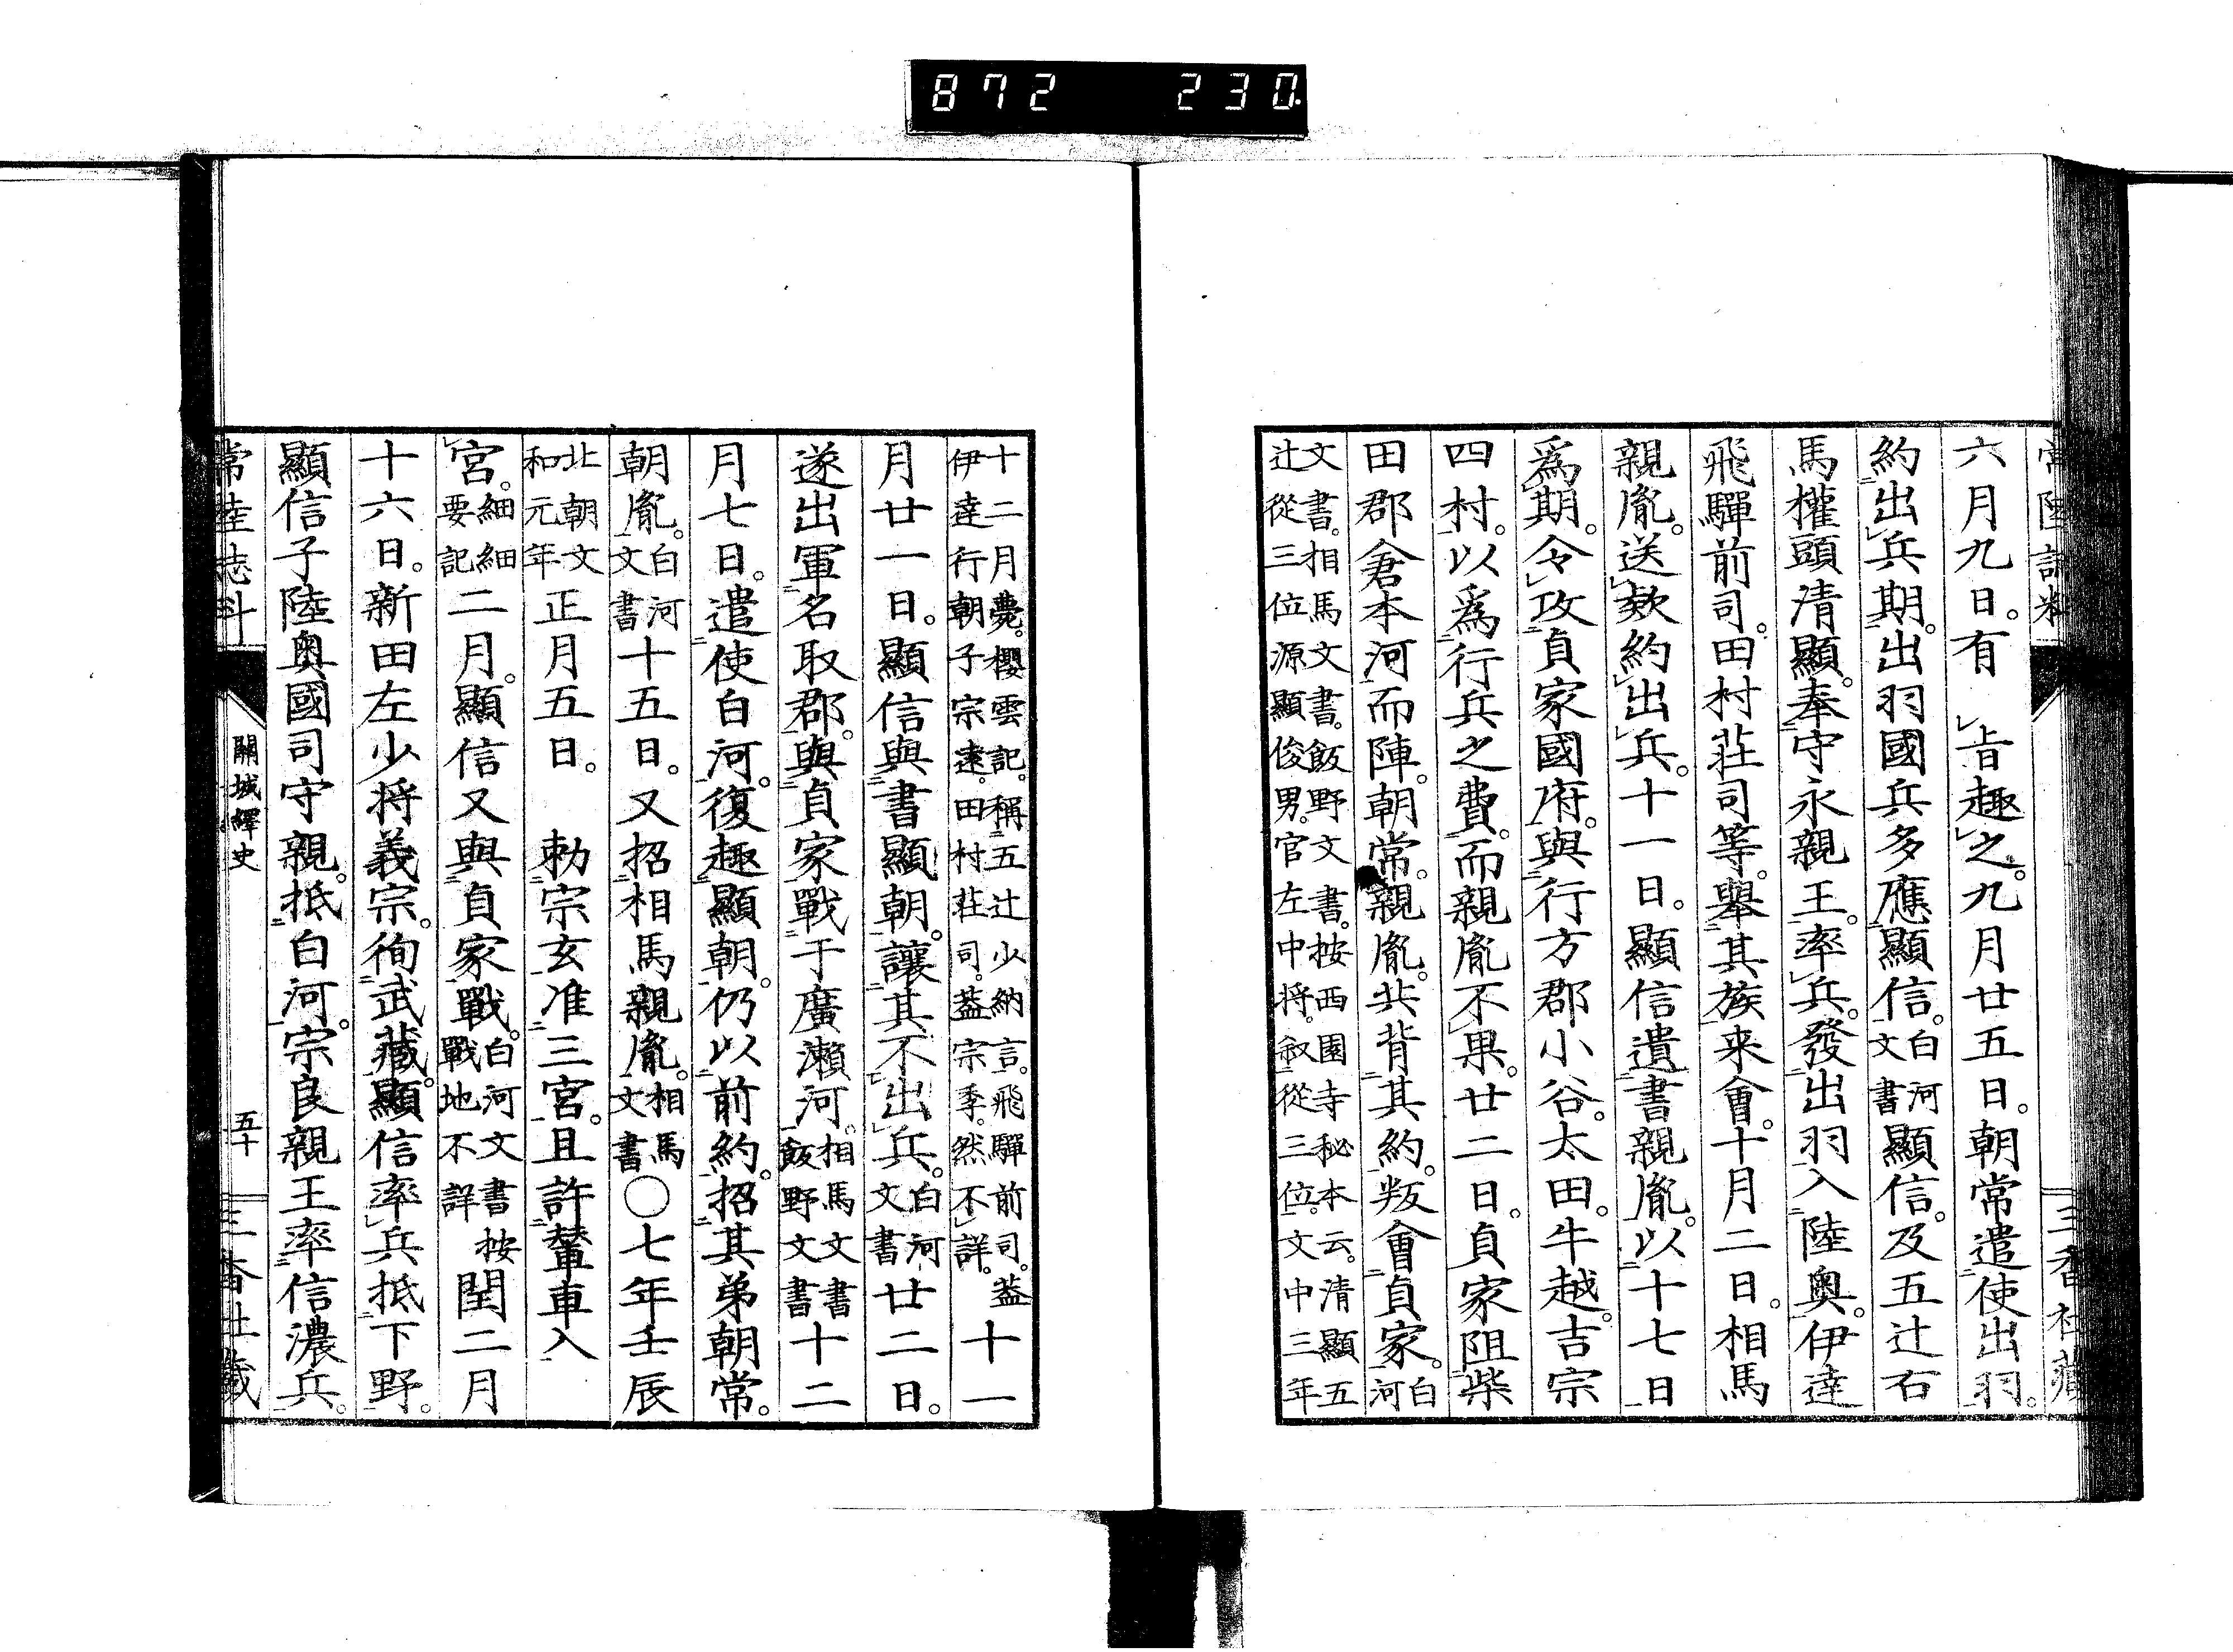 872 230
六月九日。有 旨趣之。九月廿五日。朝常遣使出羽。
約出兵期。出羽國兵多應顯信。白河文書顯信。及五辻右
馬權頭清顯。奉守永親王。率兵。發出羽入陸奥。伊達
飛驒前司。田村莊司等。舉其族来會。十月二日。相馬
親胤。送款約出兵。十一日。顯信遺書親胤。以十七日
爲期。令攻貞家國府。與行方郡小谷。太田。牛越。吉宗
四村。以爲行兵之費。而親胤不果。廿二日。貞家阻柴
田郡倉本河而陣。朝常。親胤。共背其約。叛會貞家。白河
文書。相馬文書。飯野文書。按西園寺秘本云。清顯五
辻從三位源顯俊男。官左中將。叙從三位。文中三年
十二月薨。櫻雲記。稱五辻少納言。飛驒前司。蓋
伊達行朝子宗遠。田村莊司。蓋宗季。然不詳。十一
月廿一日。顯信與書顯朝。讓其不出兵。白河文書廿二日。
遂出軍名取郡。與貞家戰于廣瀬河。相馬文書飯野文書十二
月七日。遣使白河。復趣顯朝。仍以前約。招其弟朝常。
朝胤。白河文書十五日。又招相馬親胤。相馬文書〇七年壬辰
北朝文和元年正月五日。 勅宗玄准三宮。且許輦車入
宮。細細要記二月。顯信又與貞家戰。白河文書按戰地不詳閏二月
十六日。新田左少将義宗。徇武藏。顯信率兵抵下野。
顯信子陸奥國司守親。抵白河。宗良親王率信濃兵。
關城繹史 五十